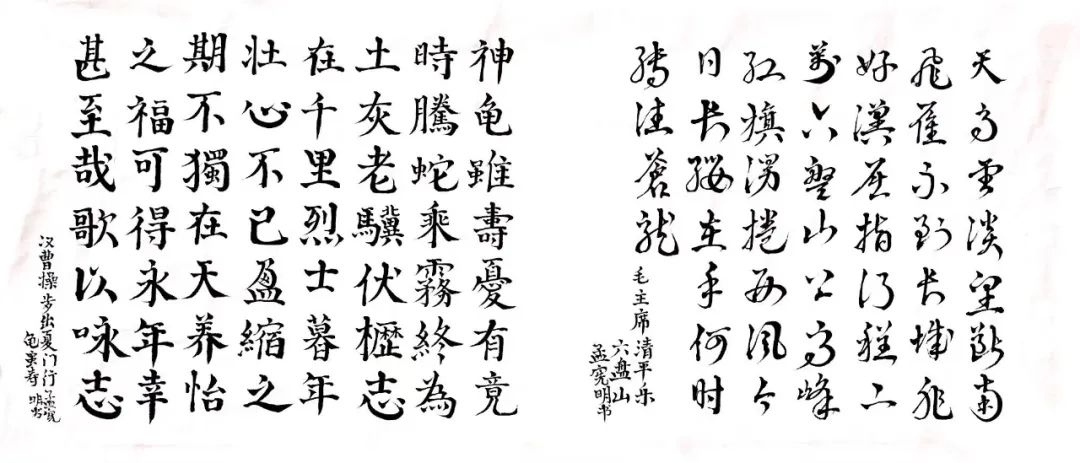 天高雲淡望断南
飛雁不到长城非
好漢屈指行程二
萬六盤山上高峰
红旗漫捲西風今
日长缨在手何时
缚住蒼龙
毛主席清平乐
六盘山
孟宪明书
神龟雖壽憂有竟
時騰蛇乘霧終為
土灰老驥伏櫪志
在千里烈士暮年
壮心不已盈縮之
期不獨在天养怡
之福可得永年幸
甚至哉歌以咏志
汉曹操步出夏门行孟宪
龟虽寿 明书